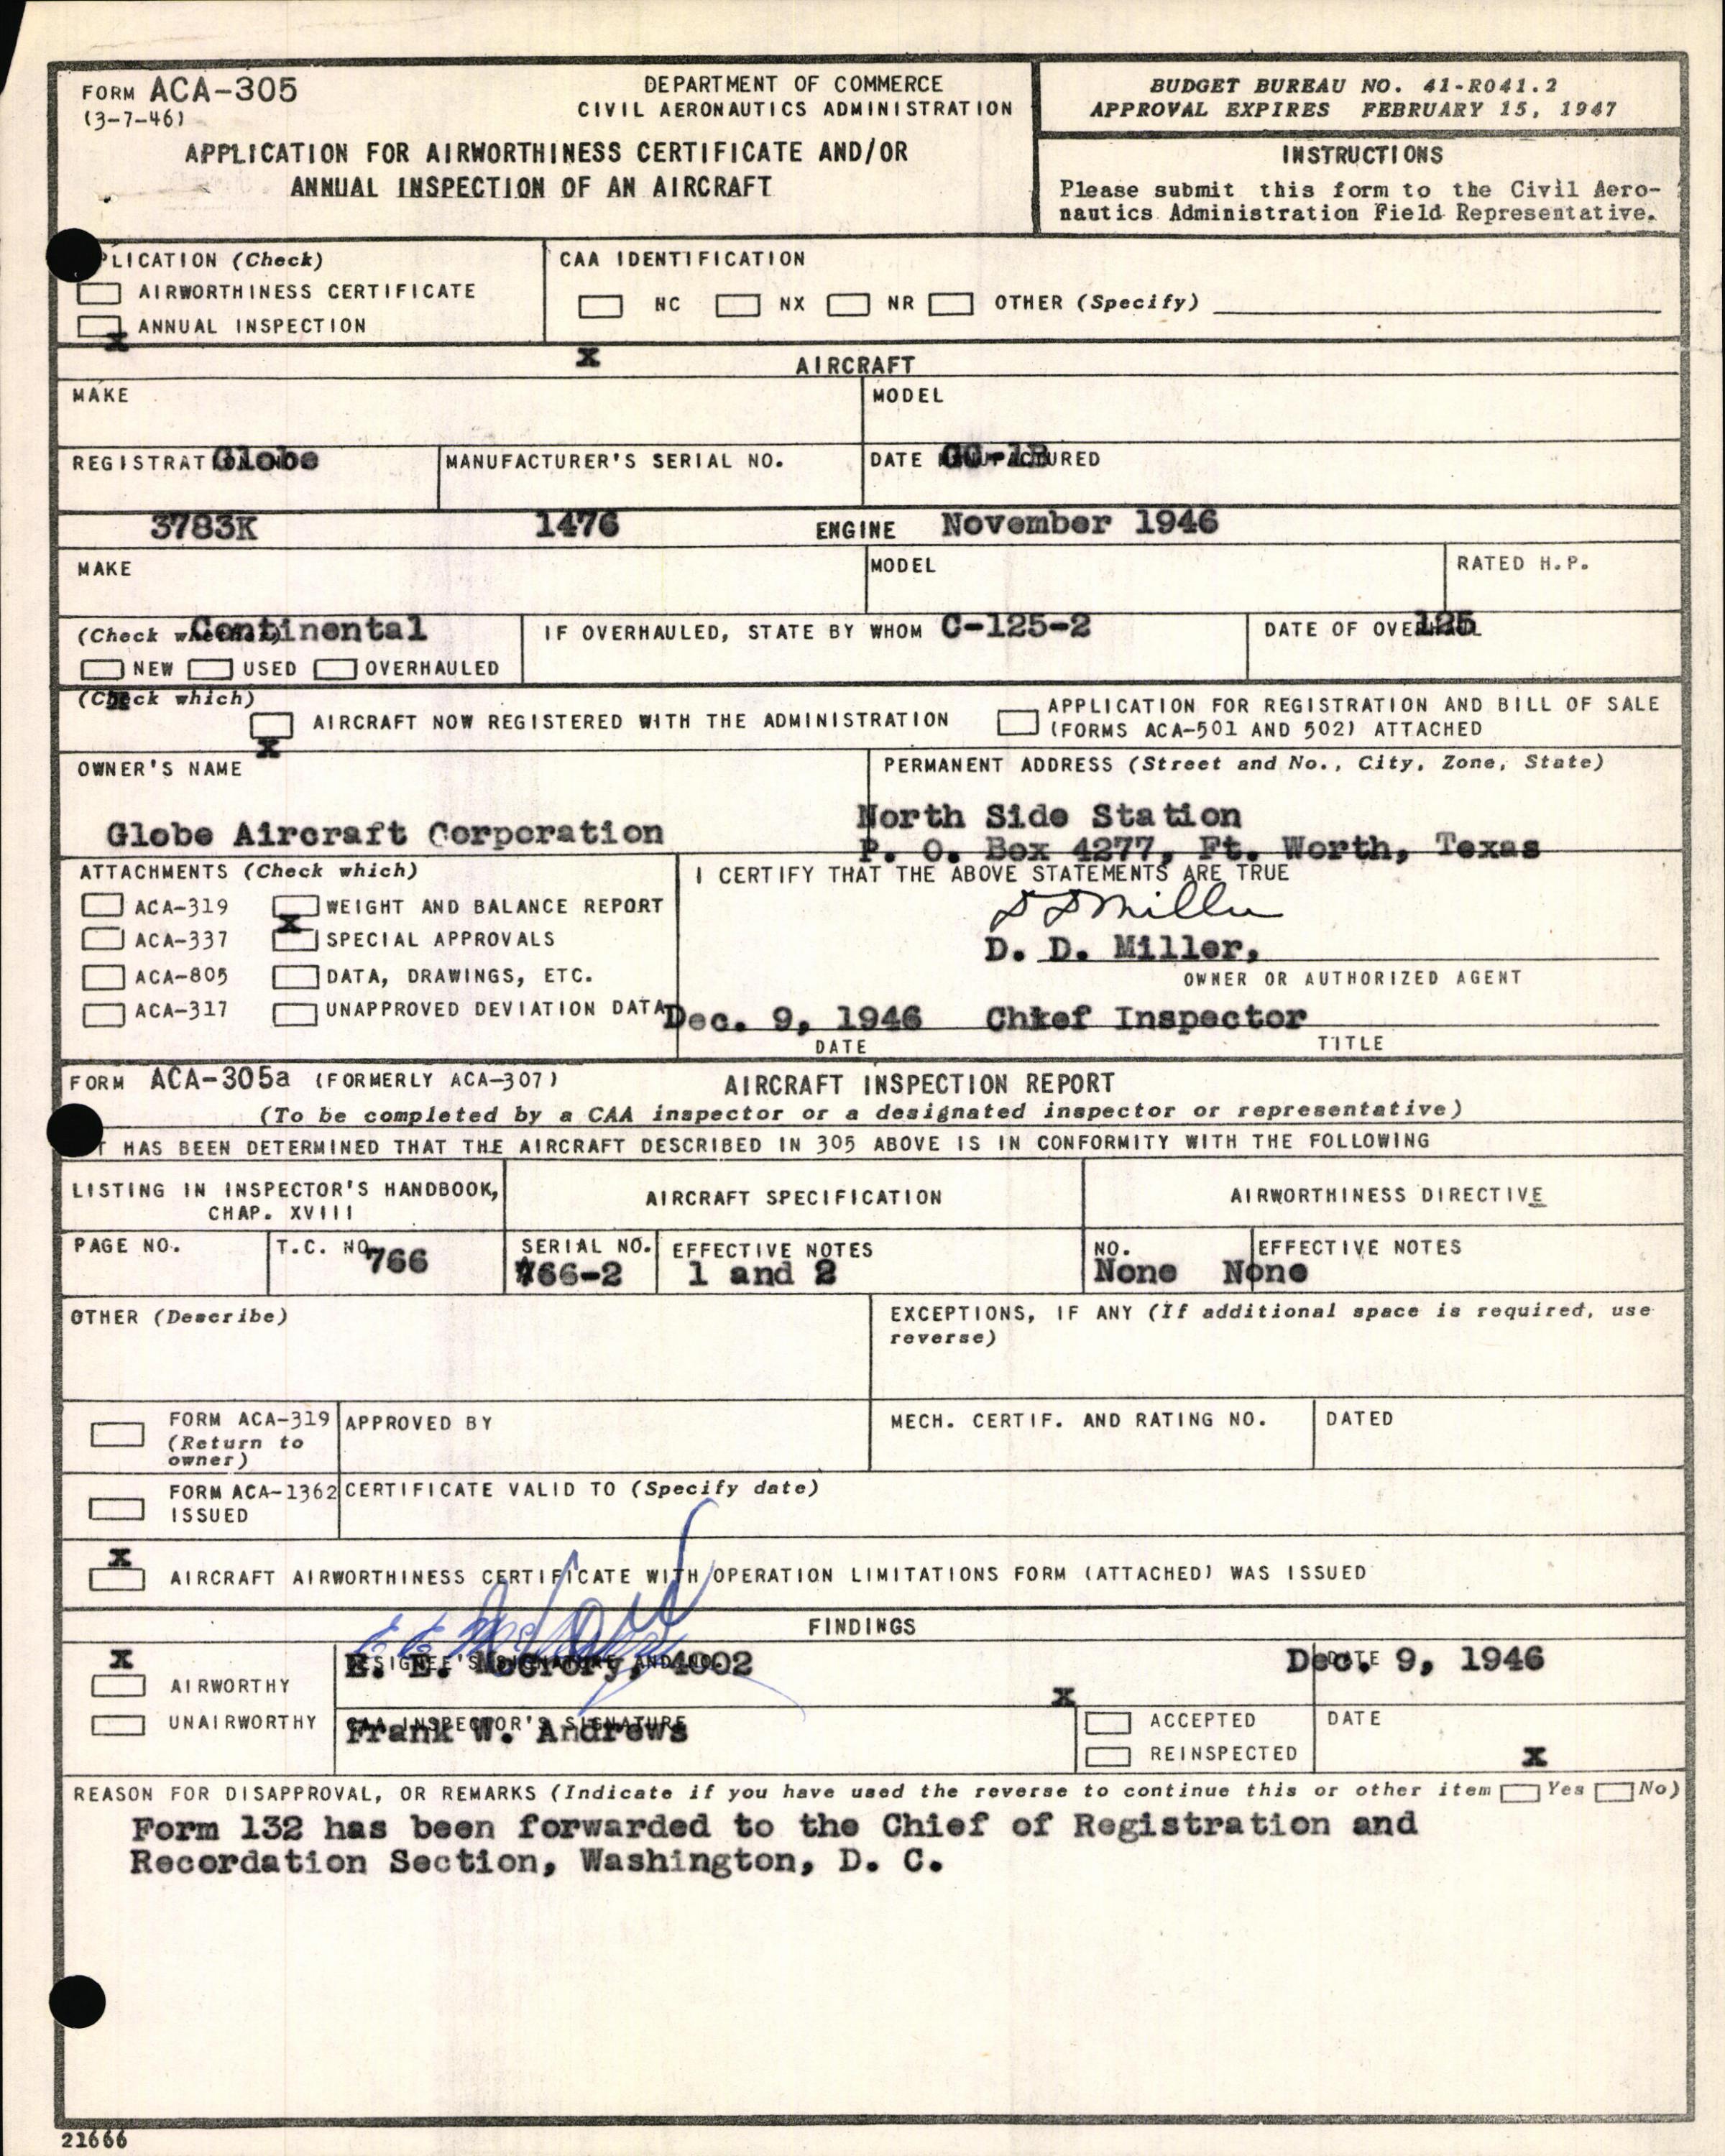 FORM ACA-305
(3-7-46)
DEPARTMENT OF COMMERCE
CIVIL AERONAUTICS ADMINISTRATION
APPLICATION FOR AIRWORTHINESS CERTIFICATE AND/OR
ANNUAL INSPECTION OF AN AIRCRAFT
BUDGET BUREAU NO. 41-R041.2
APPROVAL EXPIRES FEBRUARY 15, 1947
INSTRUCTIONS
Please submit this form to the Civil Aero-
nautics Administration Field Representative.
PLICATION (Check)
AIRWORTHINESS CERTIFICATE
ANNUAL INSPECTION
X
CAA IDENTIFICATION
NC NX NR OTHER (Specify)
X
AIRCRAFT
MAKE
MODEL
Globe
GC-1B
REGISTRATION NO.
MANUFACTURER'S SERIAL NO.
DATE MANUFACTURED
3783K
1476
November 1946
ENGINE
MAKE
MODEL
RATED H.P.
Continental
C-125-2
125
(Check which)
NEW USED OVERHAULED
IF OVERHAULED, STATE BY WHOM
DATE OF OVERHAUL
X
(Check which)
AIRCRAFT NOW REGISTERED WITH THE ADMINISTRATION
X
APPLICATION FOR REGISTRATION AND BILL OF SALE
(FORMS ACA-501 AND 502) ATTACHED
OWNER'S NAME
Globe Aircraft Corporation
PERMANENT ADDRESS (Street and No., City, Zone, State)
North Side Station
P. O. Box 4277, Ft. Worth, Texas
ATTACHMENTS (Check which)
ACA-319 WEIGHT AND BALANCE REPORT
X
ACA-337 SPECIAL APPROVALS
ACA-805 DATA, DRAWINGS, ETC.
ACA-317 UNAPPROVED DEVIATION DATA
I CERTIFY THAT THE ABOVE STATEMENTS ARE TRUE
D D Miller
D. D. Miller,
OWNER OR AUTHORIZED AGENT
Dec. 9, 1946 Chief Inspector
DATE
TITLE
FORM ACA-305a (FORMERLY ACA-307)
AIRCRAFT INSPECTION REPORT
(To be completed by a CAA inspector or a designated inspector or representative)
T HAS BEEN DETERMINED THAT THE AIRCRAFT DESCRIBED IN 305 ABOVE IS IN CONFORMITY WITH THE FOLLOWING
LISTING IN INSPECTOR'S HANDBOOK,
CHAP. XVIII
AIRCRAFT SPECIFICATION
AIRWORTHINESS DIRECTIVE
PAGE NO.
T.C. NO.
766
SERIAL NO.
766-2
EFFECTIVE NOTES
1 and 2
NO.
None
EFFECTIVE NOTES
None
OTHER (Describe)
EXCEPTIONS, IF ANY (If additional space is required, use
reverse)
FORM ACA-319
(Return to
owner)
APPROVED BY
MECH. CERTIF. AND RATING NO.
DATED
FORM ACA-1362
ISSUED
CERTIFICATE VALID TO (Specify date)
X
AIRCRAFT AIRWORTHINESS CERTIFICATE WITH OPERATION LIMITATIONS FORM (ATTACHED) WAS ISSUED
FINDINGS
X
AIRWORTHY
UNAIRWORTHY
DESIGNEE'S SIGNATURE AND NO.
E. E. McCrory, 4002
DATE
Dec. 9, 1946
CAA INSPECTOR'S SIGNATURE
Frank W. Andrews
X
ACCEPTED
REINSPECTED
DATE
X
REASON FOR DISAPPROVAL, OR REMARKS (Indicate if you have used the reverse to continue this or other item Yes No)
Form 132 has been forwarded to the Chief of Registration and
Recordation Section, Washington, D. C.
21666